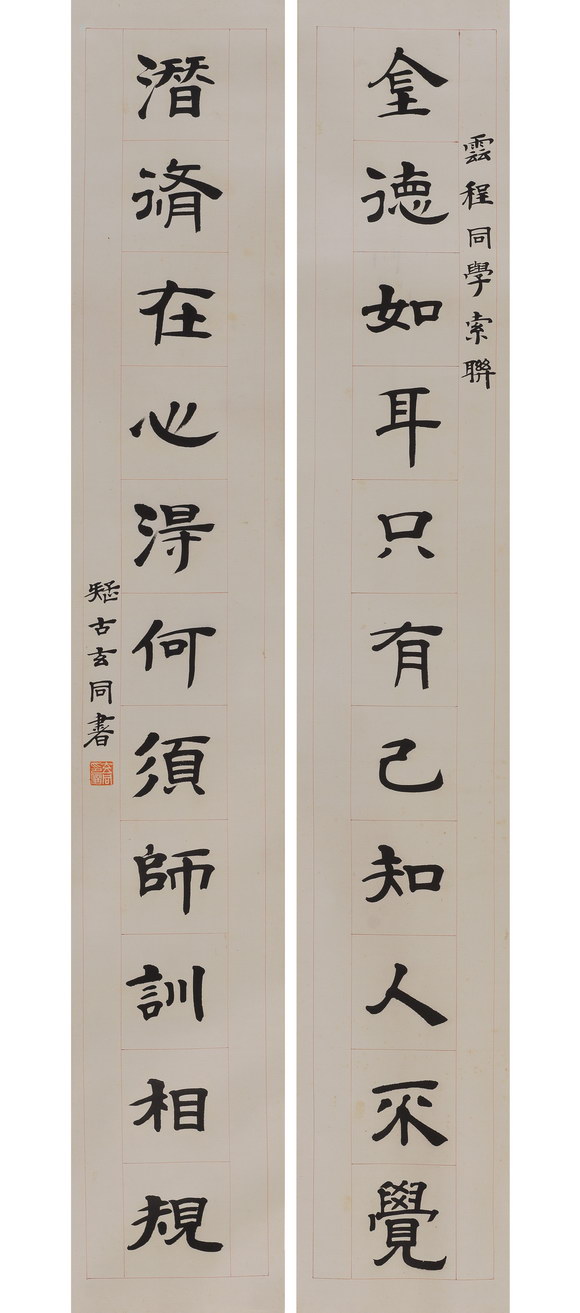 雲程同學索聯
德如耳只有己知人不覺
潛脩在心淂何須師訓相規
疑古玄同書